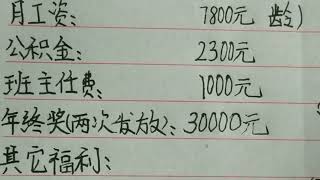 月工资: 7800元 龄)
公积金: 2300元
班主任费: 1000元
年终奖(两次发放): 30000元
其它福利: